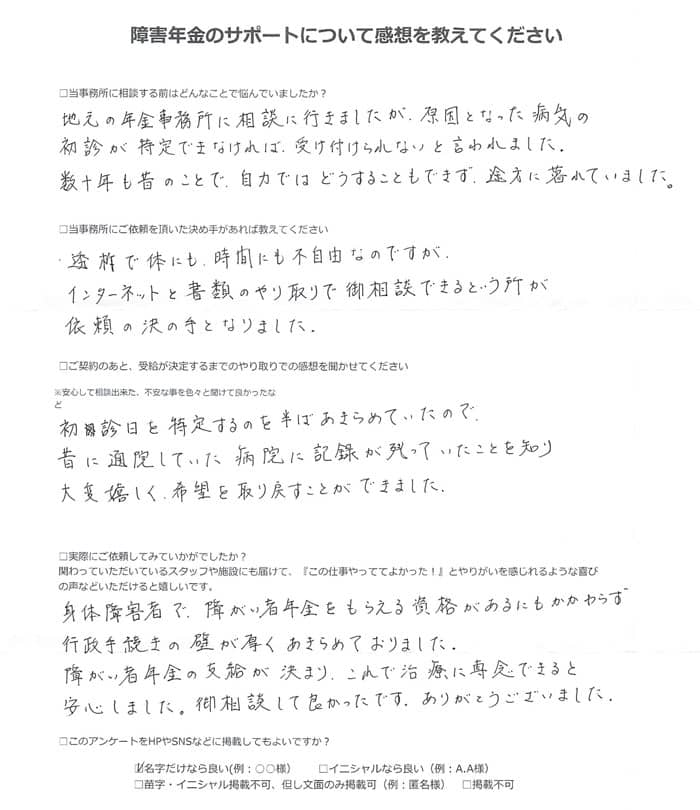 障害年金のサポートについて感想を教えてください
□当事務所に相談する前はどんなことで悩んでいましたか？
地元の年金事務所に相談に行きましたが、原因となった病気の
初診が特定できなければ、受け付けられないと言われました。
数十年も昔のことで、自力ではどうすることもできず、途方に暮れていました。
□当事務所にご依頼を頂いた決め手があれば教えてください
透析で体にも、時間にも不自由なのですが、
インターネットと書類のやり取りで御相談できるという所が
依頼の決の手となりました。
□ご契約のあと、受給が決定するまでのやり取りでの感想を聞かせてください
※安心して相談出来た、不安な事を色々と聞けて良かったな
ど
初診日を特定するのを半ばあきらめていたので、
昔に通院していた病院に記録が残っていたことを知り
大変嬉しく、希望を取り戻すことができました。
□実際にご依頼してみていかがでしたか？
関わっていただいているスタッフや施設にも届けて、『この仕事やっててよかった！』とやりがいを感じれるような喜び
の声などいただけると嬉しいです。
身体障害者で、障がい者年金をもらえる資格があるにもかかわらず
行政手続きの壁が厚くあきらめておりました。
障がい者年金の支給が決まり、これで治療に専念できると
安心しました。御相談して良かったです。ありがとうございました。
□このアンケートをHPやSNSなどに掲載してもよいですか？
☑名字だけなら良い(例：○○様） □イニシャルなら良い（例：A.A様）
□苗字・イニシャル掲載不可、但し文面のみ掲載可（例：匿名様） □掲載不可